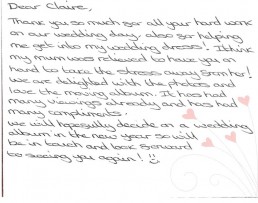 Dear Claire,
Thank you so much for all your hard work
on our wedding day. also for helping
me get into my wedding dress! I think
my mum was relieved to have you on
hand to take the stress away from her!
we are delighted with the photos and
love the moving album. It has had
many viewings already and has had
many compliments.
we will hopefully decide on a wedding
album in the new year so will
be in touch and look forward
to seeing you again! :)